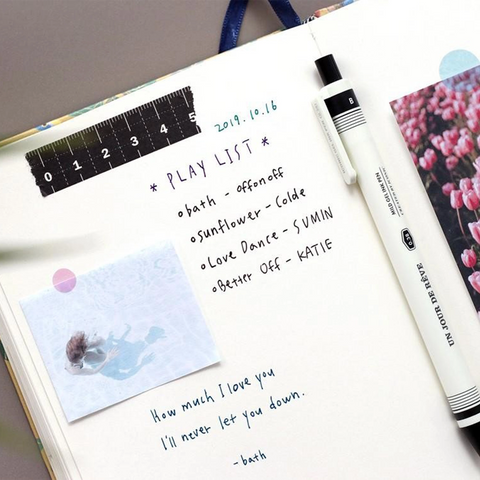 0 1 2 3 4 5
2019.10.16
* PLAY LIST *
o bath - offonoff
o sunflower - Colde
o Love Dance - SUMIN
o Better Off - KATIE
How much I love you
I'll never let you down.
- bath
B
MILD GEL INK PEN
UN JOUR DE RÊVE